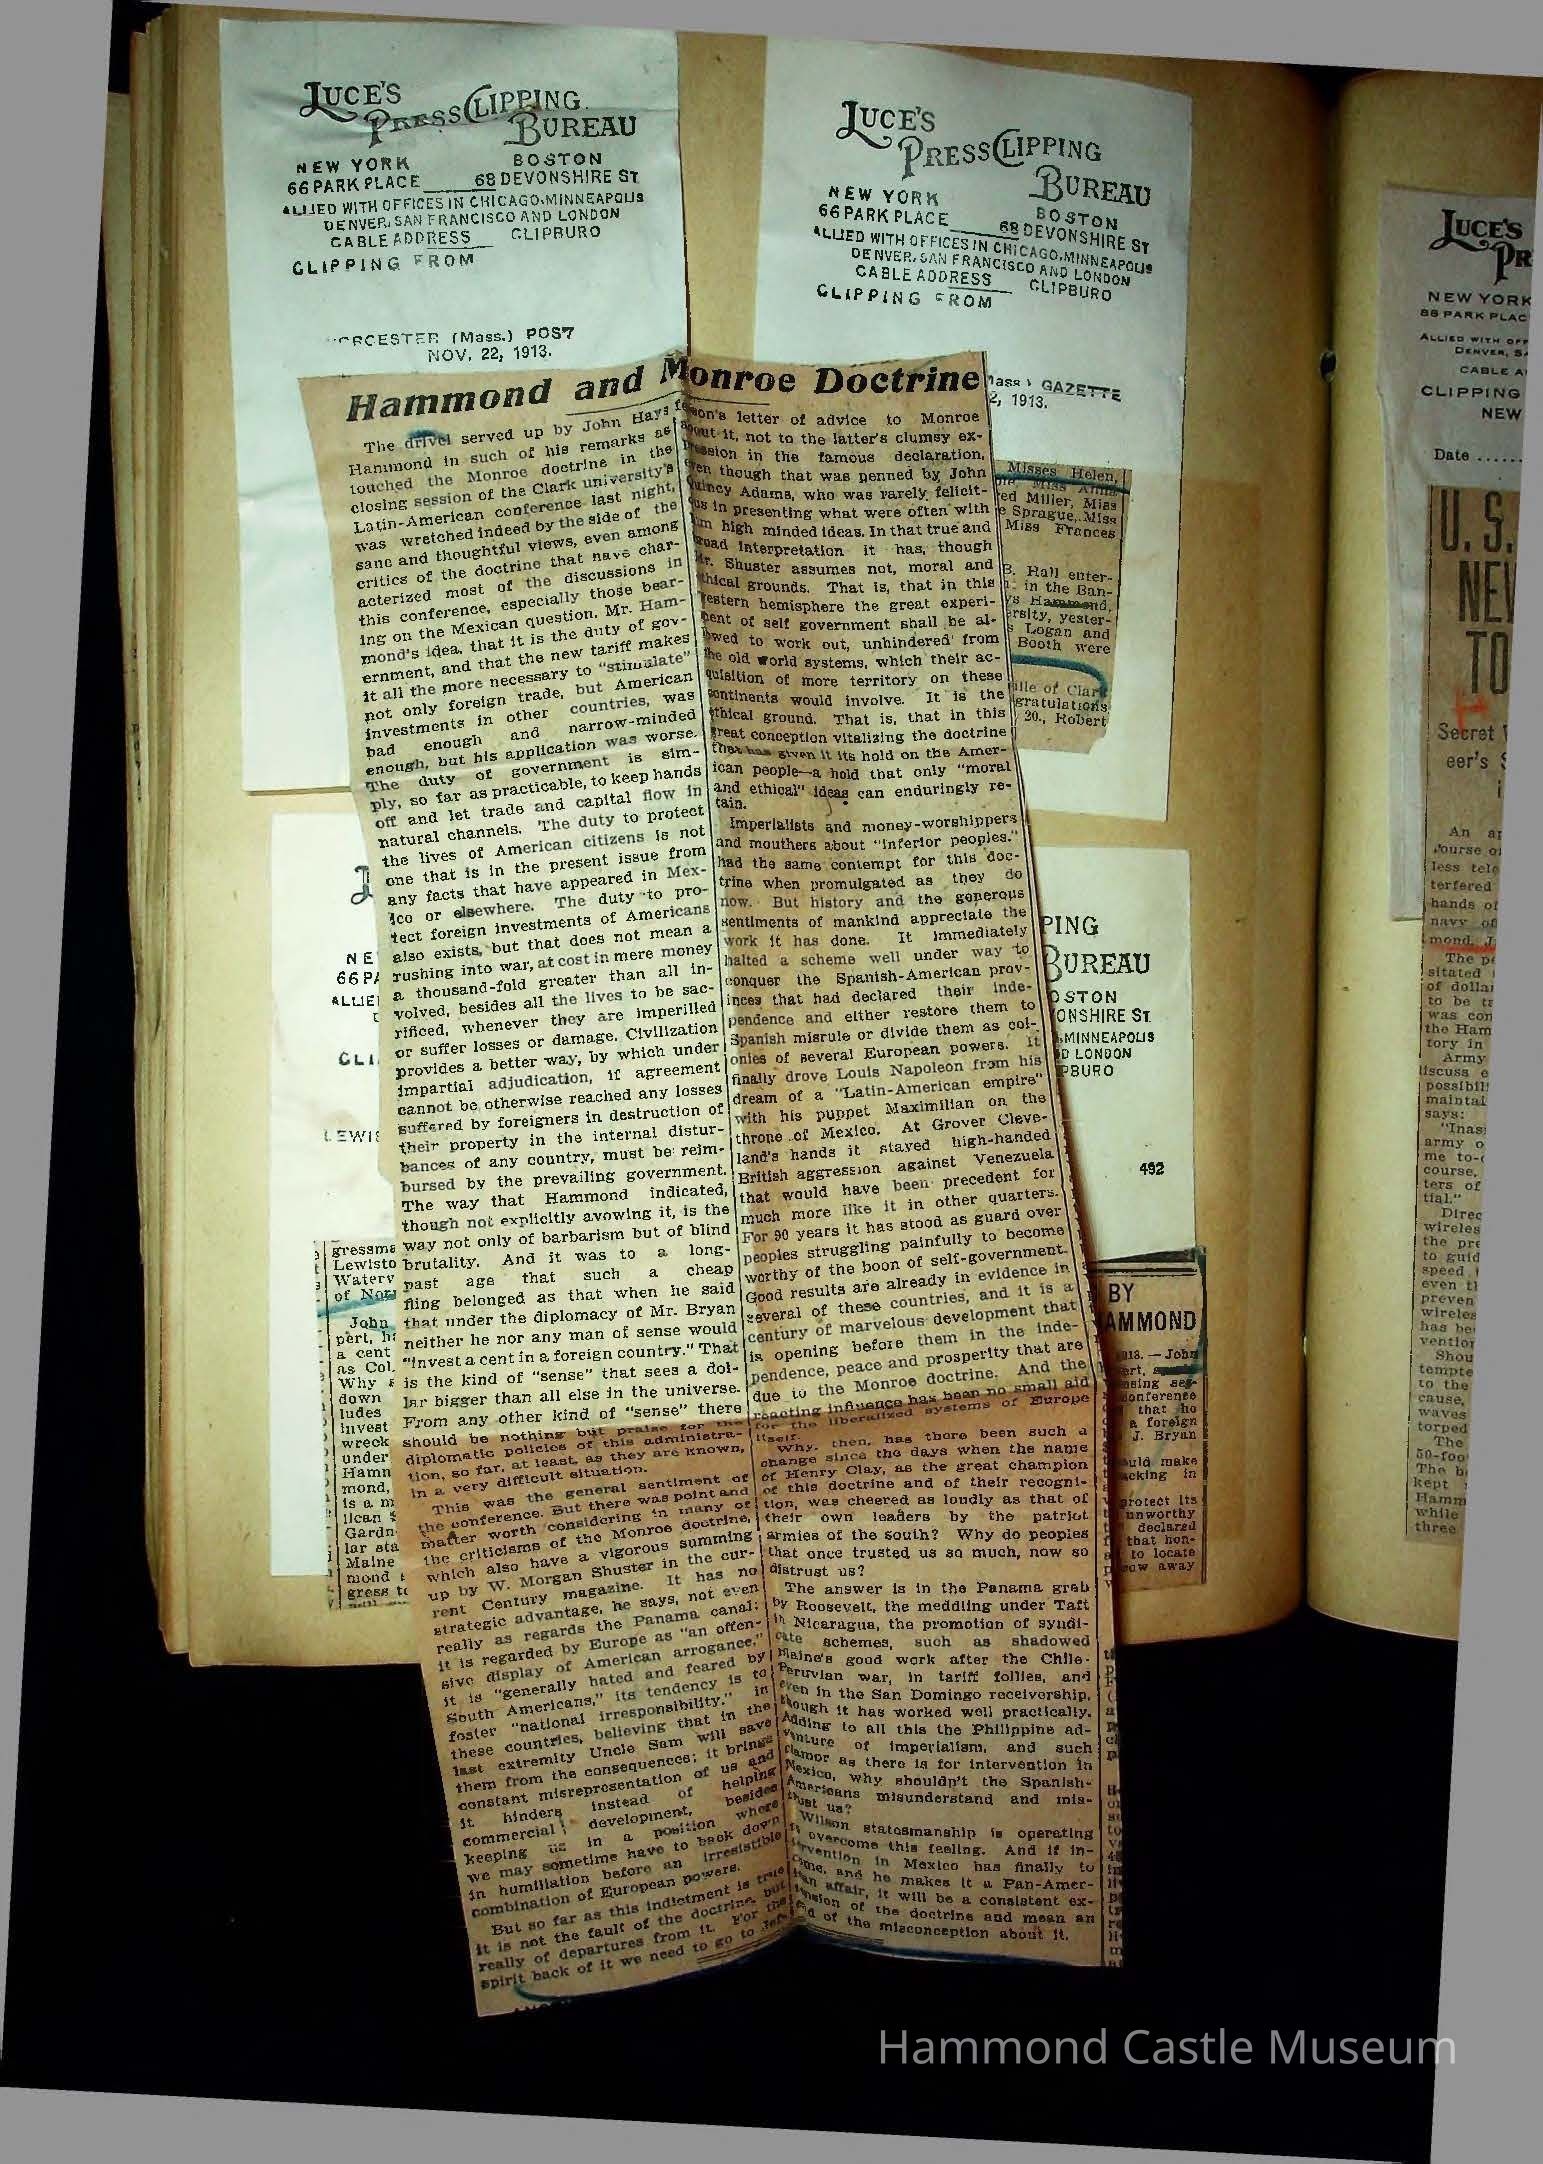 LUCE'S
PRESS CLIPPING
BUREAU
NEW YORK BOSTON
66 PARK PLACE 68 DEVONSHIRE ST
ALLIED WITH OFFICES IN CHICAGO, MINNEAPOLIS
DENVER, SAN FRANCISCO AND LONDON
CABLE ADDRESS CLIPBURO
CLIPPING FROM
RCESTER (Mass.) POST
NOV. 22, 1913.
LUCE'S
PRESS CLIPPING
BUREAU
NEW YORK BOSTON
66 PARK PLACE 68 DEVONSHIRE ST
ALLIED WITH OFFICES IN CHICAGO, MINNEAPOLIS
DENVER, SAN FRANCISCO AND LONDON
CABLE ADDRESS CLIPBURO
CLIPPING FROM
ass) GAZETTE
2, 1913.
Hammond and Monroe Doctrine
The drivel served up by John Hays
Hammond in such of his remarks as
touched the Monroe doctrine in the
closing session of the Clark university's
Latin-American conference last night,
was wretched indeed by the side of the
sane and thoughtful views, even among
critics of the doctrine that have char-
acterized most of the discussions in
this conference, especially those bear-
ing on the Mexican question. Mr. Ham-
mond's idea, that it is the duty of gov-
ernment, and that the new tariff makes
it all the more necessary to "stimulate"
not only foreign trade, but American
investments in other countries, was
bad enough and narrow-minded
enough, but his application was worse.
The duty of government is sim-
ply, so far as practicable, to keep hands
off and let trade and capital flow in
natural channels. The duty to protect
the lives of American citizens is not
one that is in the present issue from
any facts that have appeared in Mex-
ico or elsewhere. The duty to pro-
tect foreign investments of Americans
also exists, but that does not mean a
rushing into war, at cost in mere money
a thousand-fold greater than all in-
volved, besides all the lives to be sac-
rificed, whenever they are imperilled
or suffer losses or damage. Civilization
provides a better way, by which under
impartial adjudication, if agreement
cannot be otherwise reached any losses
suffered by foreigners in destruction of
their property in the internal distur-
bances of any country, must be reim-
bursed by the prevailing government.
The way that Hammond indicated,
though not explicitly avowing it, is the
way not only of barbarism but of blind
brutality. And it was to a long-
past age that such a cheap
fling belonged as that when he said
that under the diplomacy of Mr. Bryan
neither he nor any man of sense would
"invest a cent in a foreign country." That
is the kind of "sense" that sees a dol-
lar bigger than all else in the universe.
From any other kind of "sense" there
should be nothing but praise for the
diplomatic policies of this administra-
tion, so far, at least, as they are known,
in a very difficult situation.
This was the general sentiment of
the conference. But there was point and
matter worth considering in many of
the criticisms of the Monroe doctrine,
which also have a vigorous summing
up by W. Morgan Shuster in the cur-
rent Century magazine. It has no
strategic advantage, he says, not even
really as regards the Panama canal;
it is regarded by Europe as "an offen-
sive display of American arrogance,"
it is "generally hated and feared by
South Americans," its tendency is to
foster "national irresponsibility." in
these countries, believing that in the
last extremity Uncle Sam will save
them from the consequences; it brings
constant misrepresentation of us and
it hinders instead of helping
commercial development, besides
keeping us in a position where
we may sometime have to back down
in humiliation before an irresistible
combination of European powers.
But so far as this indictment is true
it is not the fault of the doctrine, but
really of departures from it. For the
spirit back of it we need to go to Jef-
ferson's letter of advice to Monroe
about it, not to the latter's clumsy ex-
pression in the famous declaration,
even though that was penned by John
Quincy Adams, who was rarely felicit-
ous in presenting what were often with
him high minded ideas. In that true and
broad interpretation it has, though
Mr. Shuster assumes not, moral and
ethical grounds. That is, that in this
western hemisphere the great experi-
ment of self government shall be al-
lowed to work out, unhindered from
the old world systems, which their ac-
quisition of more territory on these
continents would involve. It is the
ethical ground. That is, that in this
great conception vitalizing the doctrine
that has given it its hold on the Amer-
ican people—a hold that only "moral
and ethical" ideas can enduringly re-
tain.
Imperialists and money-worshippers
and mouthers about "inferior peoples."
had the same contempt for this doc-
trine when promulgated as they do
now. But history and the generous
sentiments of mankind appreciate the
work it has done. It immediately
halted a scheme well under way to
conquer the Spanish-American prov-
inces that had declared their inde-
pendence and either restore them to
Spanish misrule or divide them as col-
onies of several European powers. It
finally drove Louis Napoleon from his
dream of a "Latin-American empire"
with his puppet Maximilian on the
throne of Mexico. At Grover Cleve-
land's hands it stayed high-handed
British aggression against Venezuela
that would have been precedent for
much more like it in other quarters.
For 90 years it has stood as guard over
peoples struggling painfully to become
worthy of the boon of self-government.
Good results are already in evidence in
several of these countries, and it is a
century of marvelous development that
is opening before them in the inde-
pendence, peace and prosperity that are
due to the Monroe doctrine. And the
reacting influence has been no small aid
for the liberalized systems of Europe
itself.
Why, then, has there been such a
change since the days when the name
of Henry Clay, as the great champion
of this doctrine and of their recogni-
tion, was cheered as loudly as that of
their own leaders by the patriot
armies of the south? Why do peoples
that once trusted us so much, now so
distrust us?
The answer is in the Panama grab
by Roosevelt, the meddling under Taft
in Nicaragua, the promotion of syndi-
cate schemes, such as shadowed
Blaine's good work after the Chile-
Peruvian war, in tariff follies, and
even in the San Domingo receivership,
though it has worked well practically.
Adding to all this the Philippine ad-
venture of imperialism, and such
clamor as there is for intervention in
Mexico, why shouldn't the Spanish-
Americans misunderstand and mis-
trust us?
Wilson statesmanship is operating
to overcome this feeling. And if in-
tervention in Mexico has finally to
come, and he makes it a Pan-Amer-
ican affair, it will be a consistent ex-
tension of the doctrine and mean an
end of the misconception about it.
Misses Helen,
Miss Anna
ed Miller, Miss
e Sprague, Miss
Miss Frances
B. Hall enter-
in the Ban-
ys Hammond,
ersity, yester-
s Logan and
Booth were
ille of Clark
gratulations
20., Robert
NE
66 PA
ALLIE
CLI
LEWIS
PING
BUREAU
OSTON
ONSHIRE ST.
MINNEAPOLIS
D LONDON
PBURO
492
gressma
Lewisto
Waterv
of Nor
John
pert, h
a cent
as Col.
Why
down
ludes
invest
wreck
under
Hamn
mond,
is a m
lican
Gardn
lar sta
Maine
mond
gress to
BY
AMMOND
1913. — John
ert,
osing ses-
conference
that he
a foreign
J. Bryan
ould make
acking in
protect its
unworthy
declared
that hon-
to locate
ow away
LUCE'S
PR
NEW YORK
66 PARK PLAC
ALLIED WITH OFF
DENVER, S
CABLE A
CLIPPING
NEW
Date
U. S.
NEW
TO
Secret
eer's
An
course o
less tele
terfered
hands of
navy of
mond, J
The pe
sitated
of dolla
to be
was con
the Ham
tory in
Army
discuss
possibil
maintai
says:
"Inas
army o
me to-
course,
ters of
tial."
Direc
wireles
the pre
to guid
speed
even t
preven
wireles
has be
vention
Shou
tempte
to the
cause,
waves
torped
The
50-foo
The b
kept
Hamm
while
three
Hammond Castle Museum